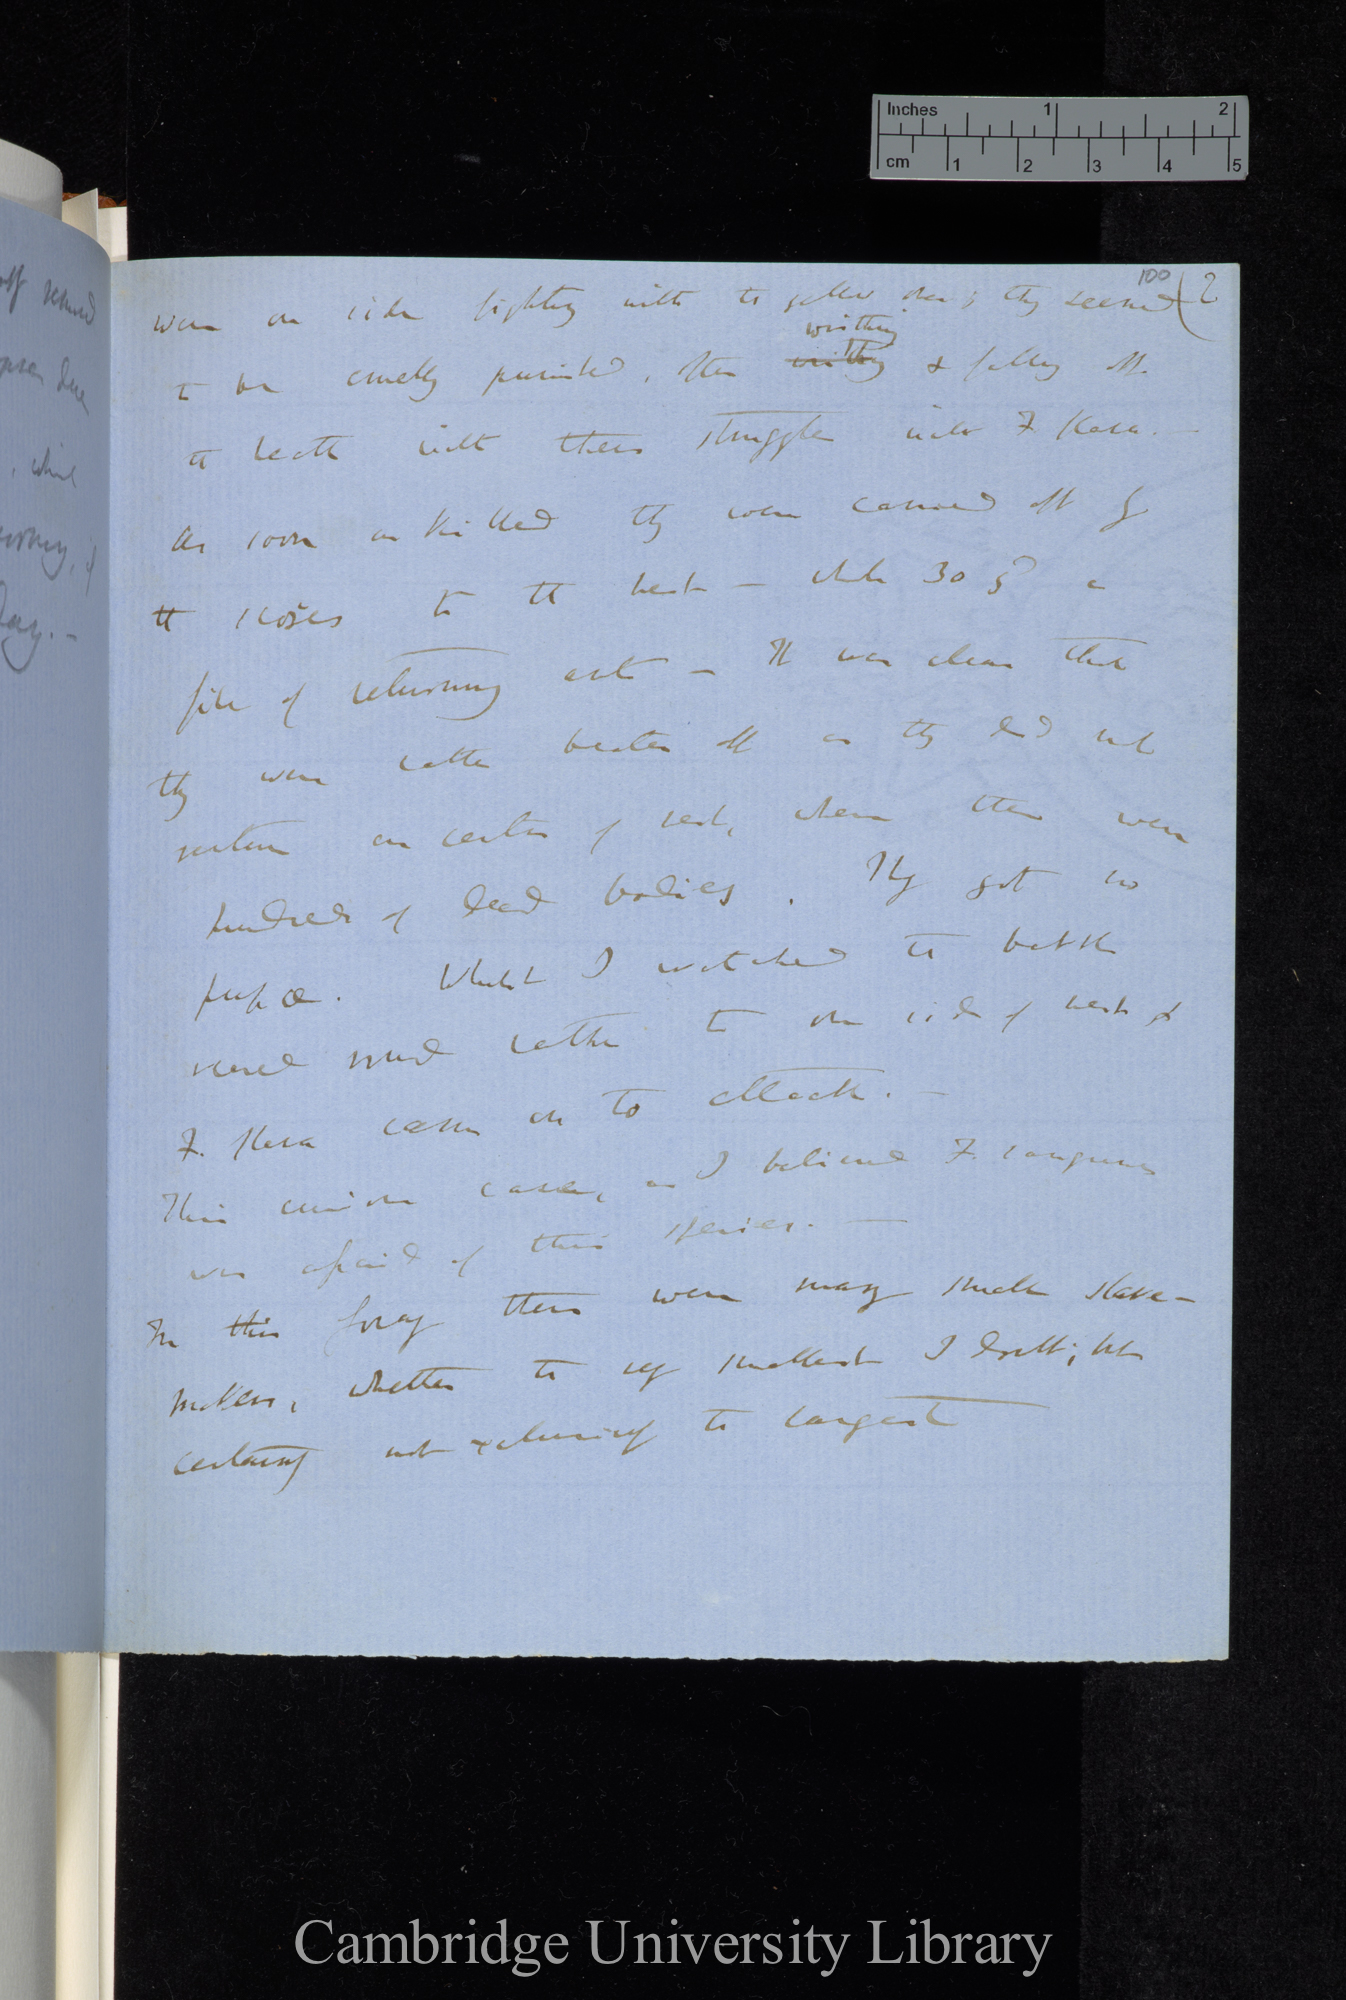 Inches 1 2
cm 1 2 3 4 5
100 (2
were on side fighting with the yellow ones; they seemed
writhing
to be cruelly punished, often & falling off
to death with their struggles with F. flava. —
As soon as killed they were carried off by
the to the nest — whole 30 of a
file of returning ants — It was clear that
they were rather beaten off as they did not
venture on centre of nest, where there were
hundreds of dead bodies. They got no
pupæ. Whilst I watched the battle
several moved rather to one side of nest &
F. flava came on to attack. —
This curious case, as I believed F. sanguinea
was afraid of this species. —
In this foray there were many small slave-
makers, whether the very smallest I doubt; but
certainly not exclusively the largest
off
, which
day. —
Cambridge University Library